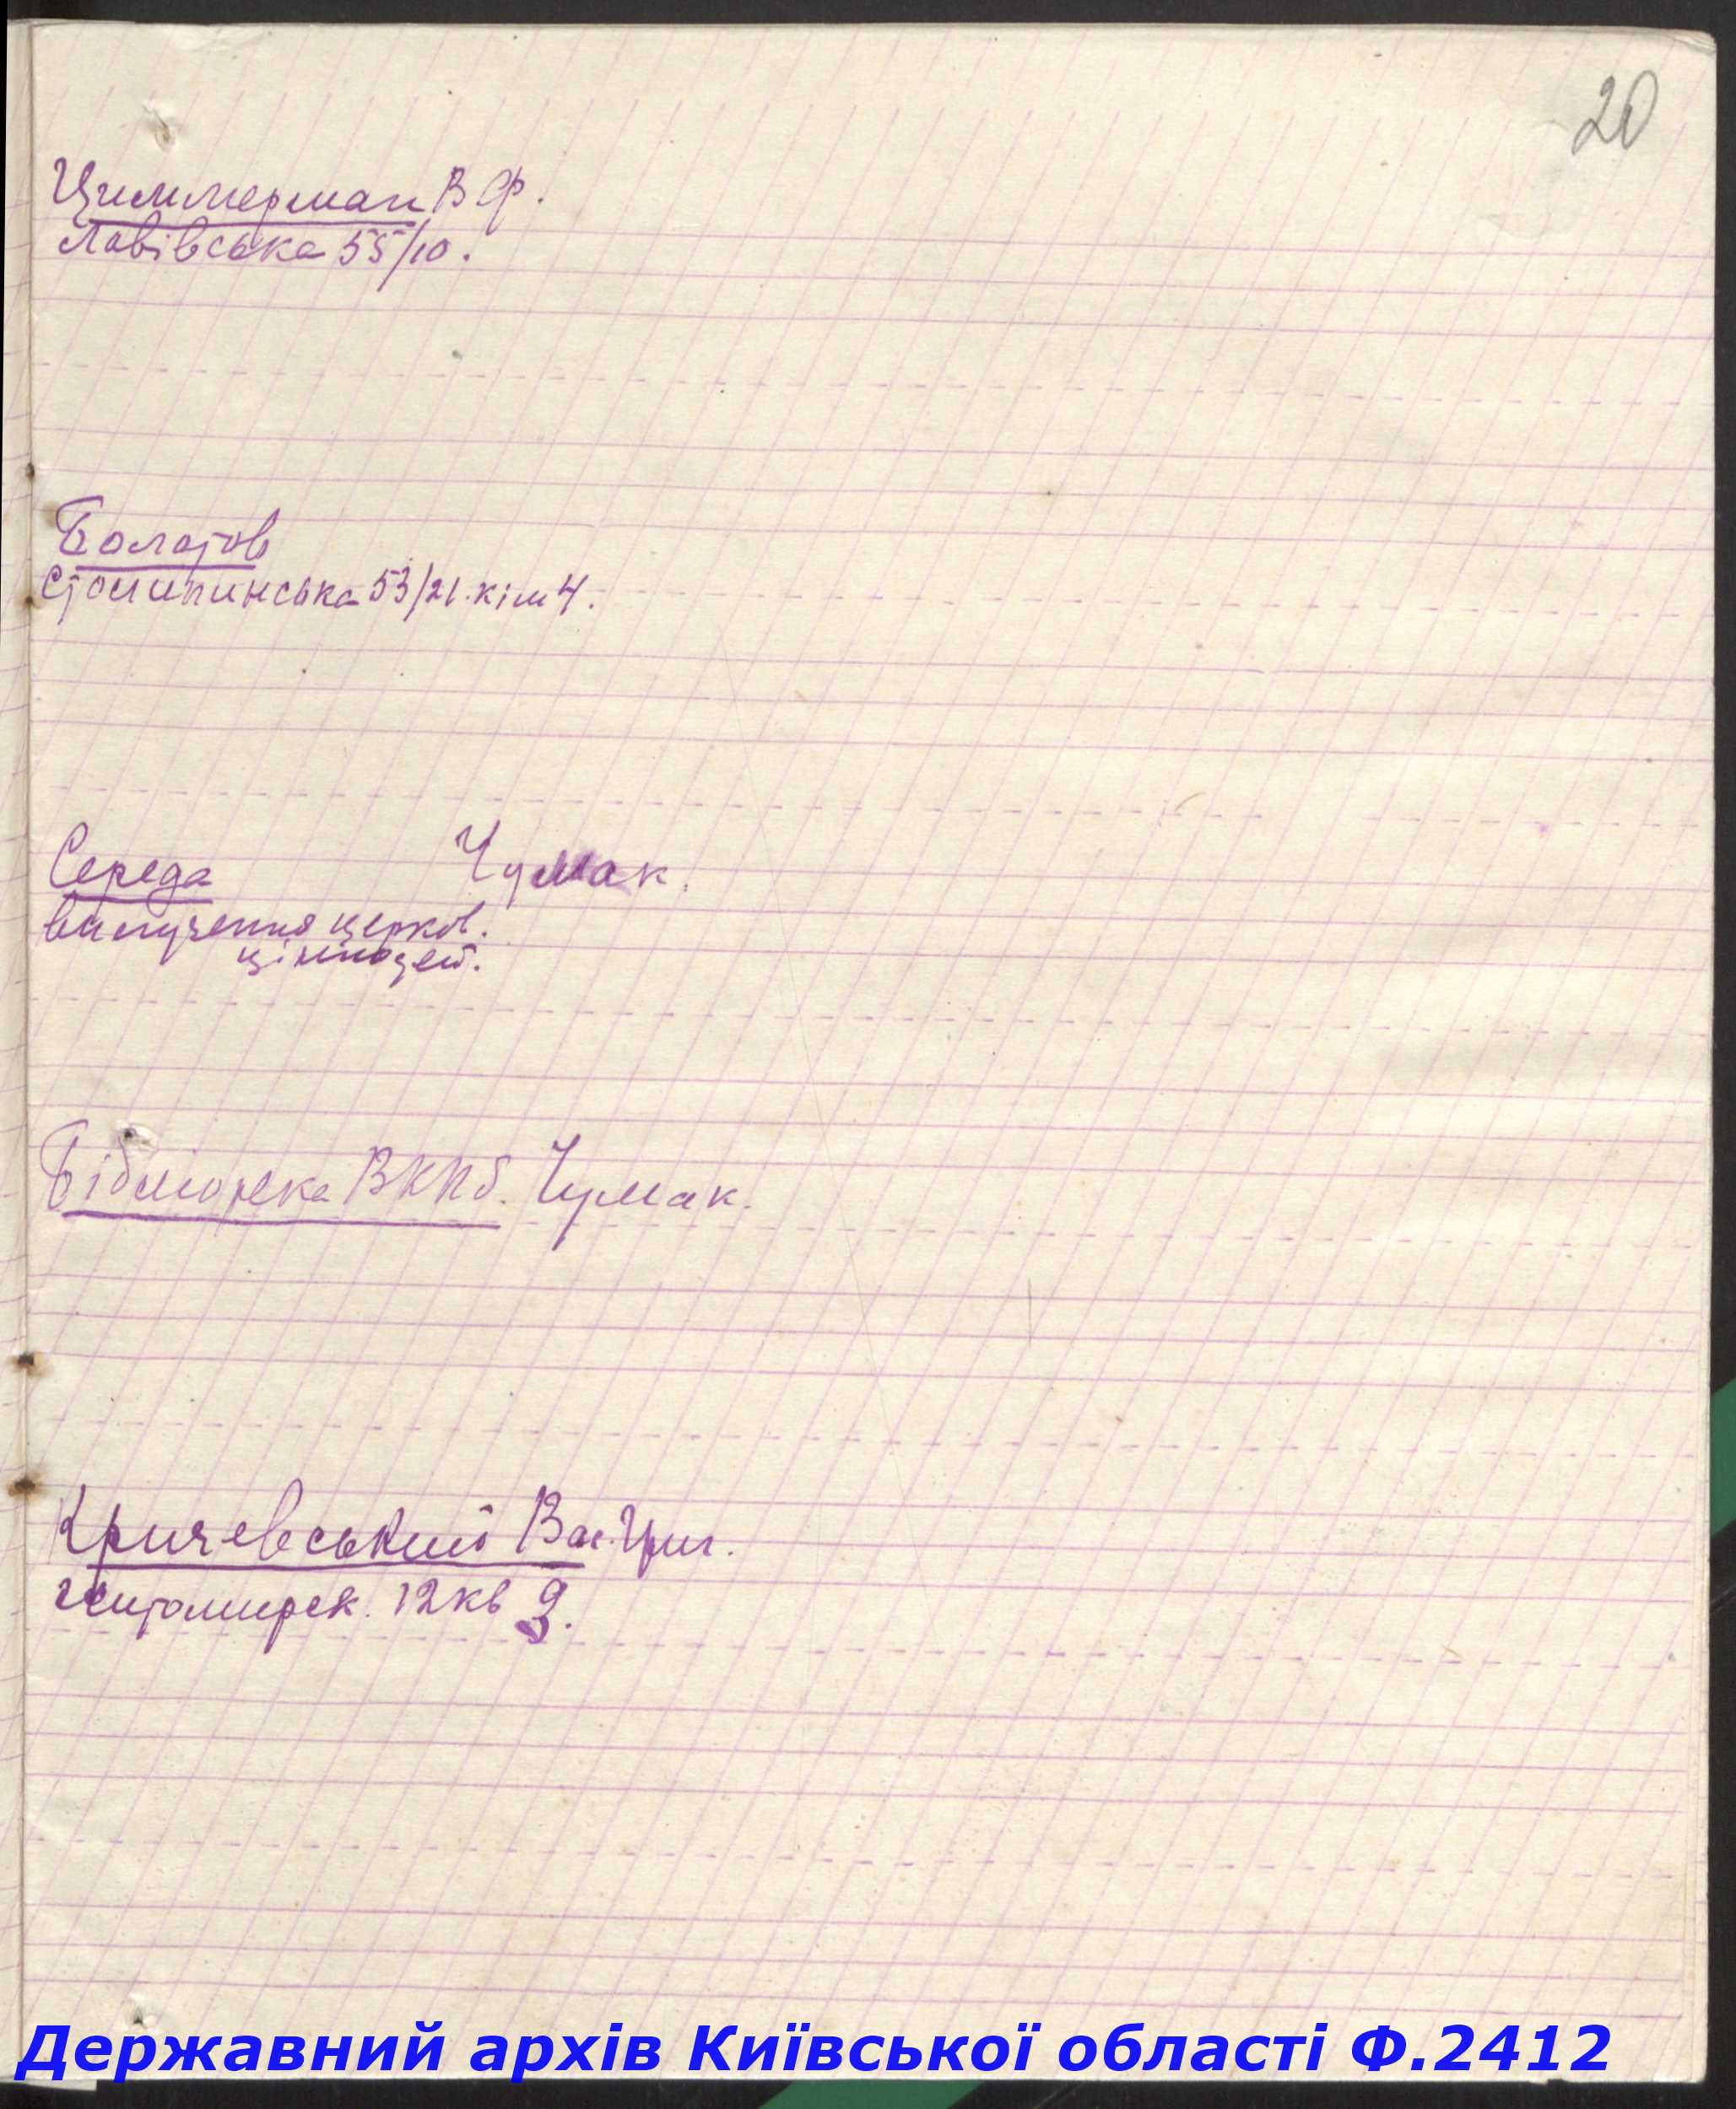 20
Циммерман В Ф.
Львівська 55/10.
Болотов
Столипинська 53/21. кім 4.
Середа Чумак.
вилучення церков.
цінностей.
Бібліотека ВКПб. Чумак.
Кричевський Вас. Григ.
Житомирск. 12 кв 9.
Державний архів Київської області Ф.2412